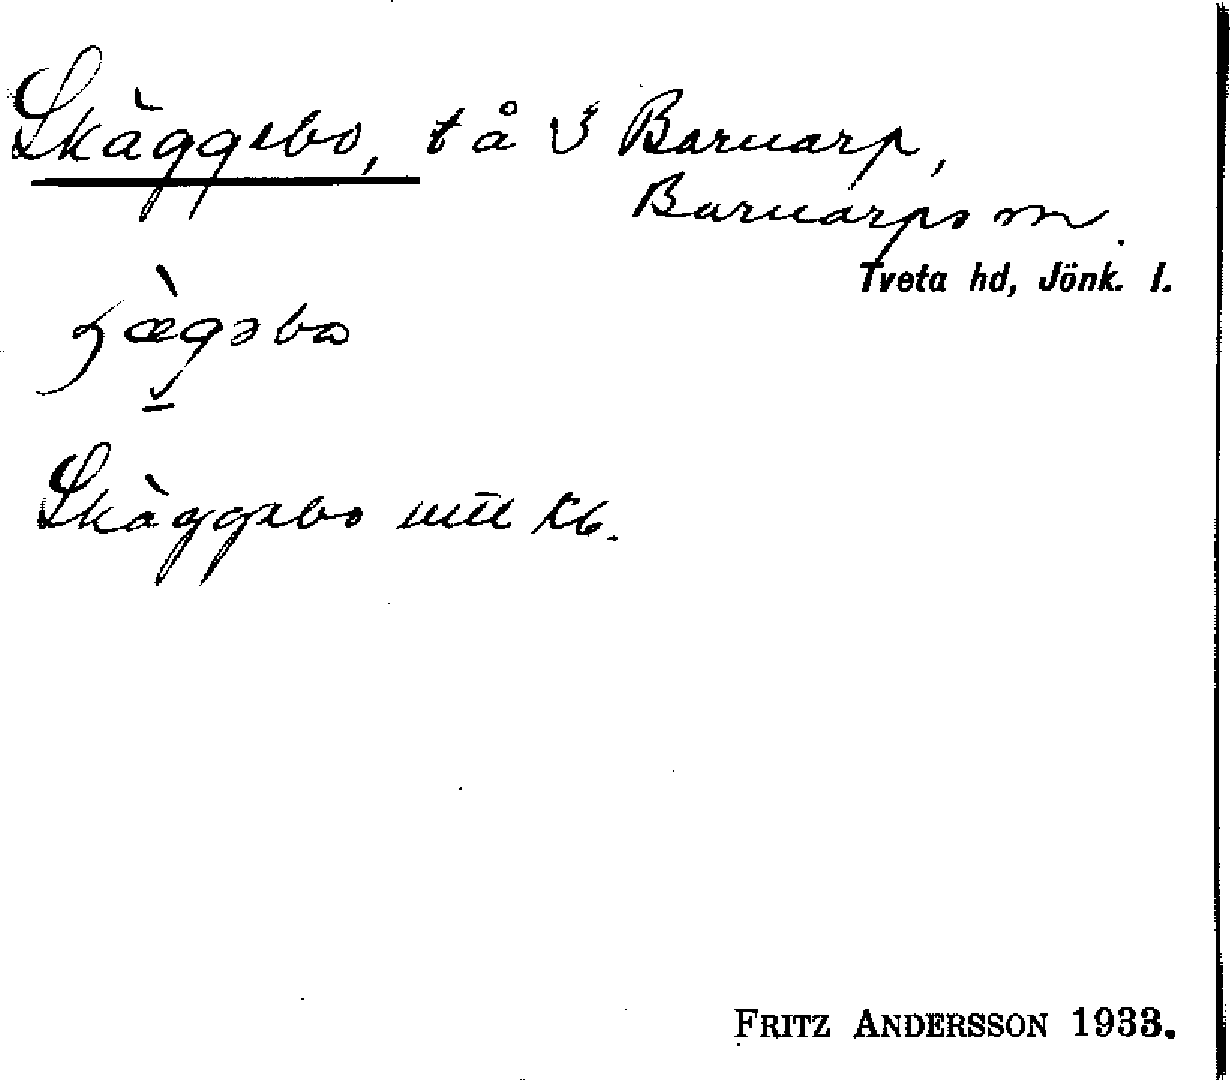 Skäggebo, t å 3 Barnarp,
Barnarps sn.
Tveta hd, Jönk. l.
Skäggebo uttt Kb.
FRITZ ANDERSSON 1933.